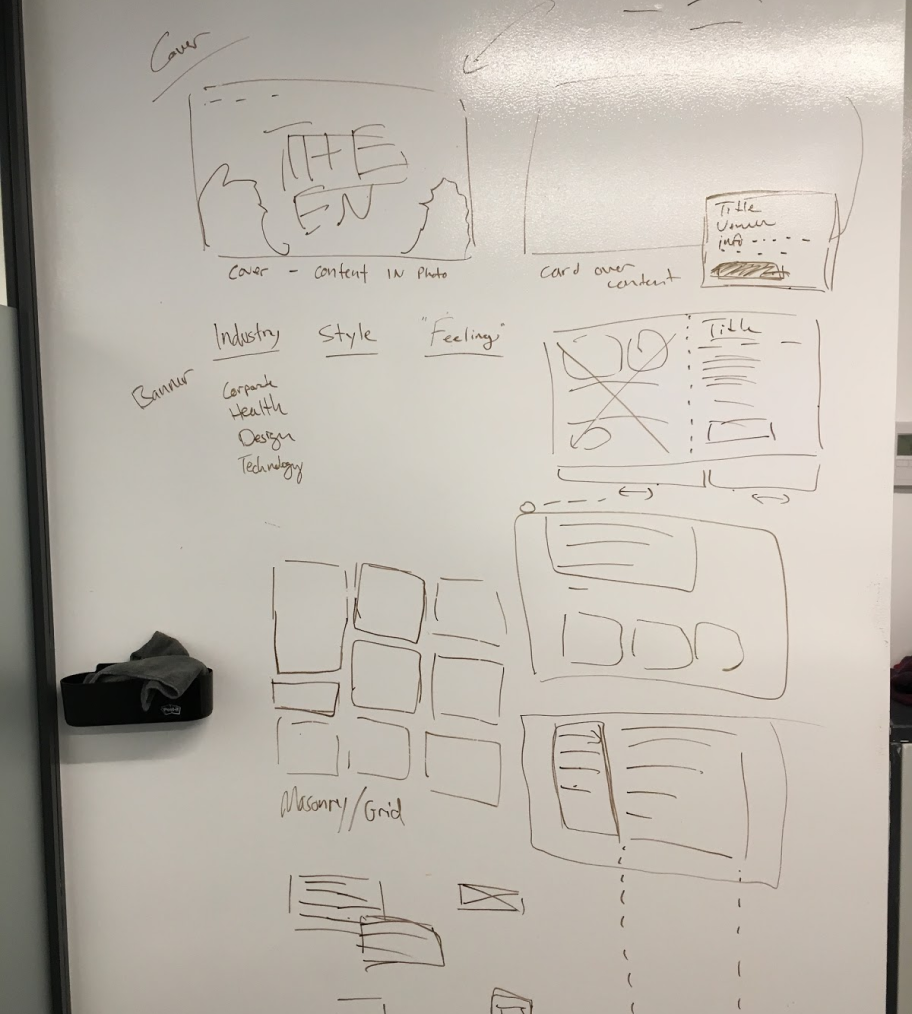 Cover
THE
EN
Cover - Content IN Photo
Title
Venue
info
card over
content
Industry Style "Feeling"
Banner
Corporate
Health
Design
Technology
Title
Masonry/Grid